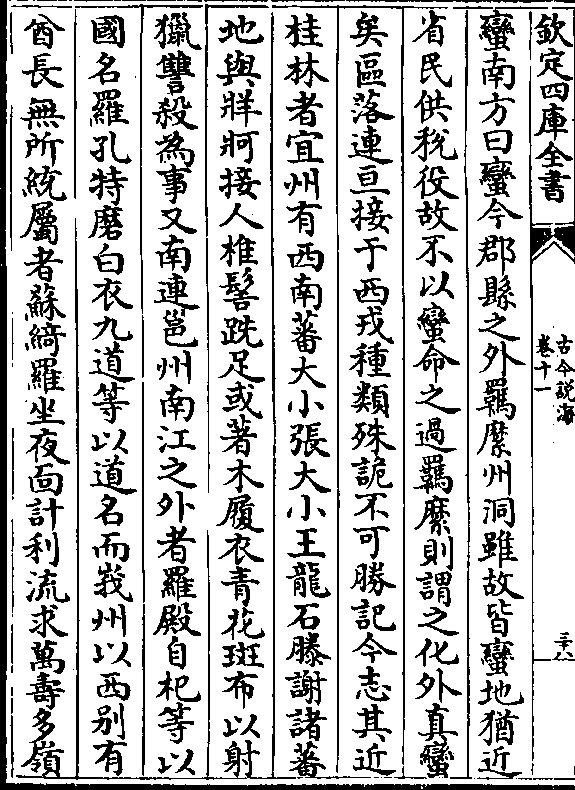 欽定四庫全書
古今説海
卷十一
三十八
蠻南方曰蠻今郡縣之外羈縻州洞雖故皆蠻地猶近
省民供税役故不以蠻命之過羈縻則謂之化外真蠻
矣區落連亘接于西戎種類殊詭不可勝記今志其近
桂林者宜州有西南蕃大小張大小王龍石滕謝諸蕃
地與牂牁接人椎髻跣足或著木履衣青花斑布以射
獵讐殺為事又南連邕州南江之外者羅殿自杞等以
國名羅孔特磨白衣九道等以道名而峩州以西别有
酋長無所統屬者蘇綺羅坐夜面計利流求萬壽多嶺